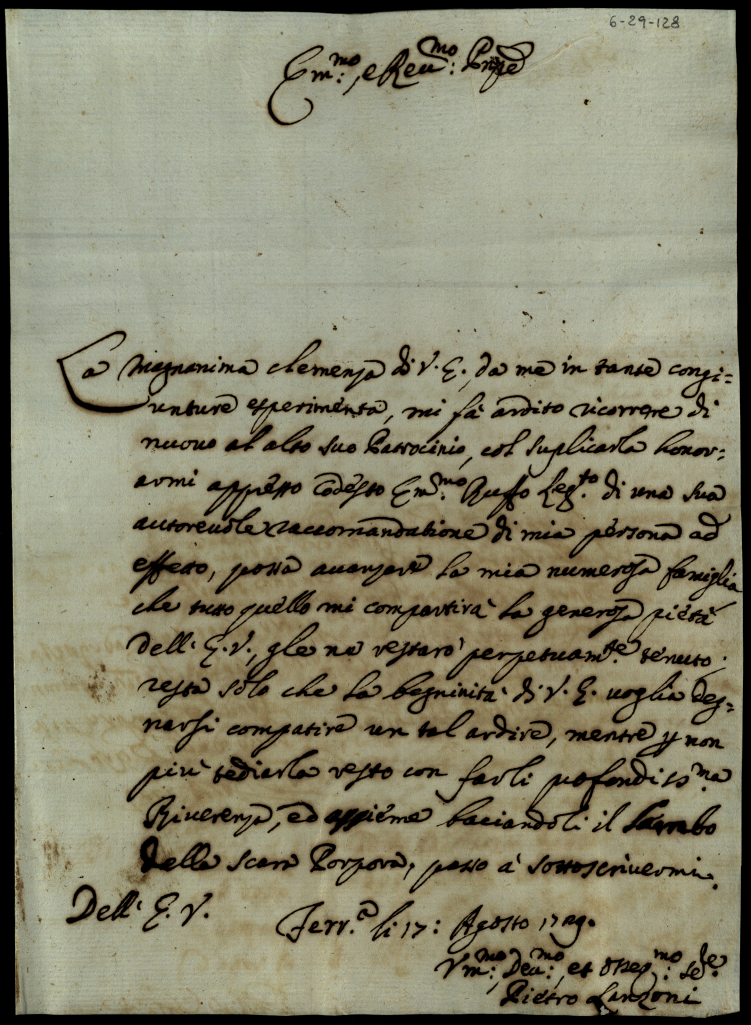 6-29-128
Em:mo, e Reu:mo Prnpe
La Magnanima clemenza di V. E., da me in tante congi=
unture esperimenta, mi fà ardito ricorrere di
nuouo al alto suo Patrocinio, col suplicarla honor=
armi appresso codesto Em:mo Ruffo Leg:to di una sua
autoreuole raccomandatione di mia persona ad
effetto, possa auanzare la mia numerosa famiglia
che tutto quello mi compartirà la generosa pietà
dell' E. V., gle ne restarò perpetuam:te tenuto;
resta solo che la begninità di V. E. uoglia deg=
narsi compatire un tal ardire, mentre p non
più tediarla resto con farli profondiss:ma
Riuerenza, ed assieme baciandoli il Lembo
della scara Porpora, passo à sottoscriuermi.
Dell' E. V.
Ferr:a li 17: Agosto 17
Vm:mo, Deu:mo, et Osseq:mo se:re
Pietro Lanzoni